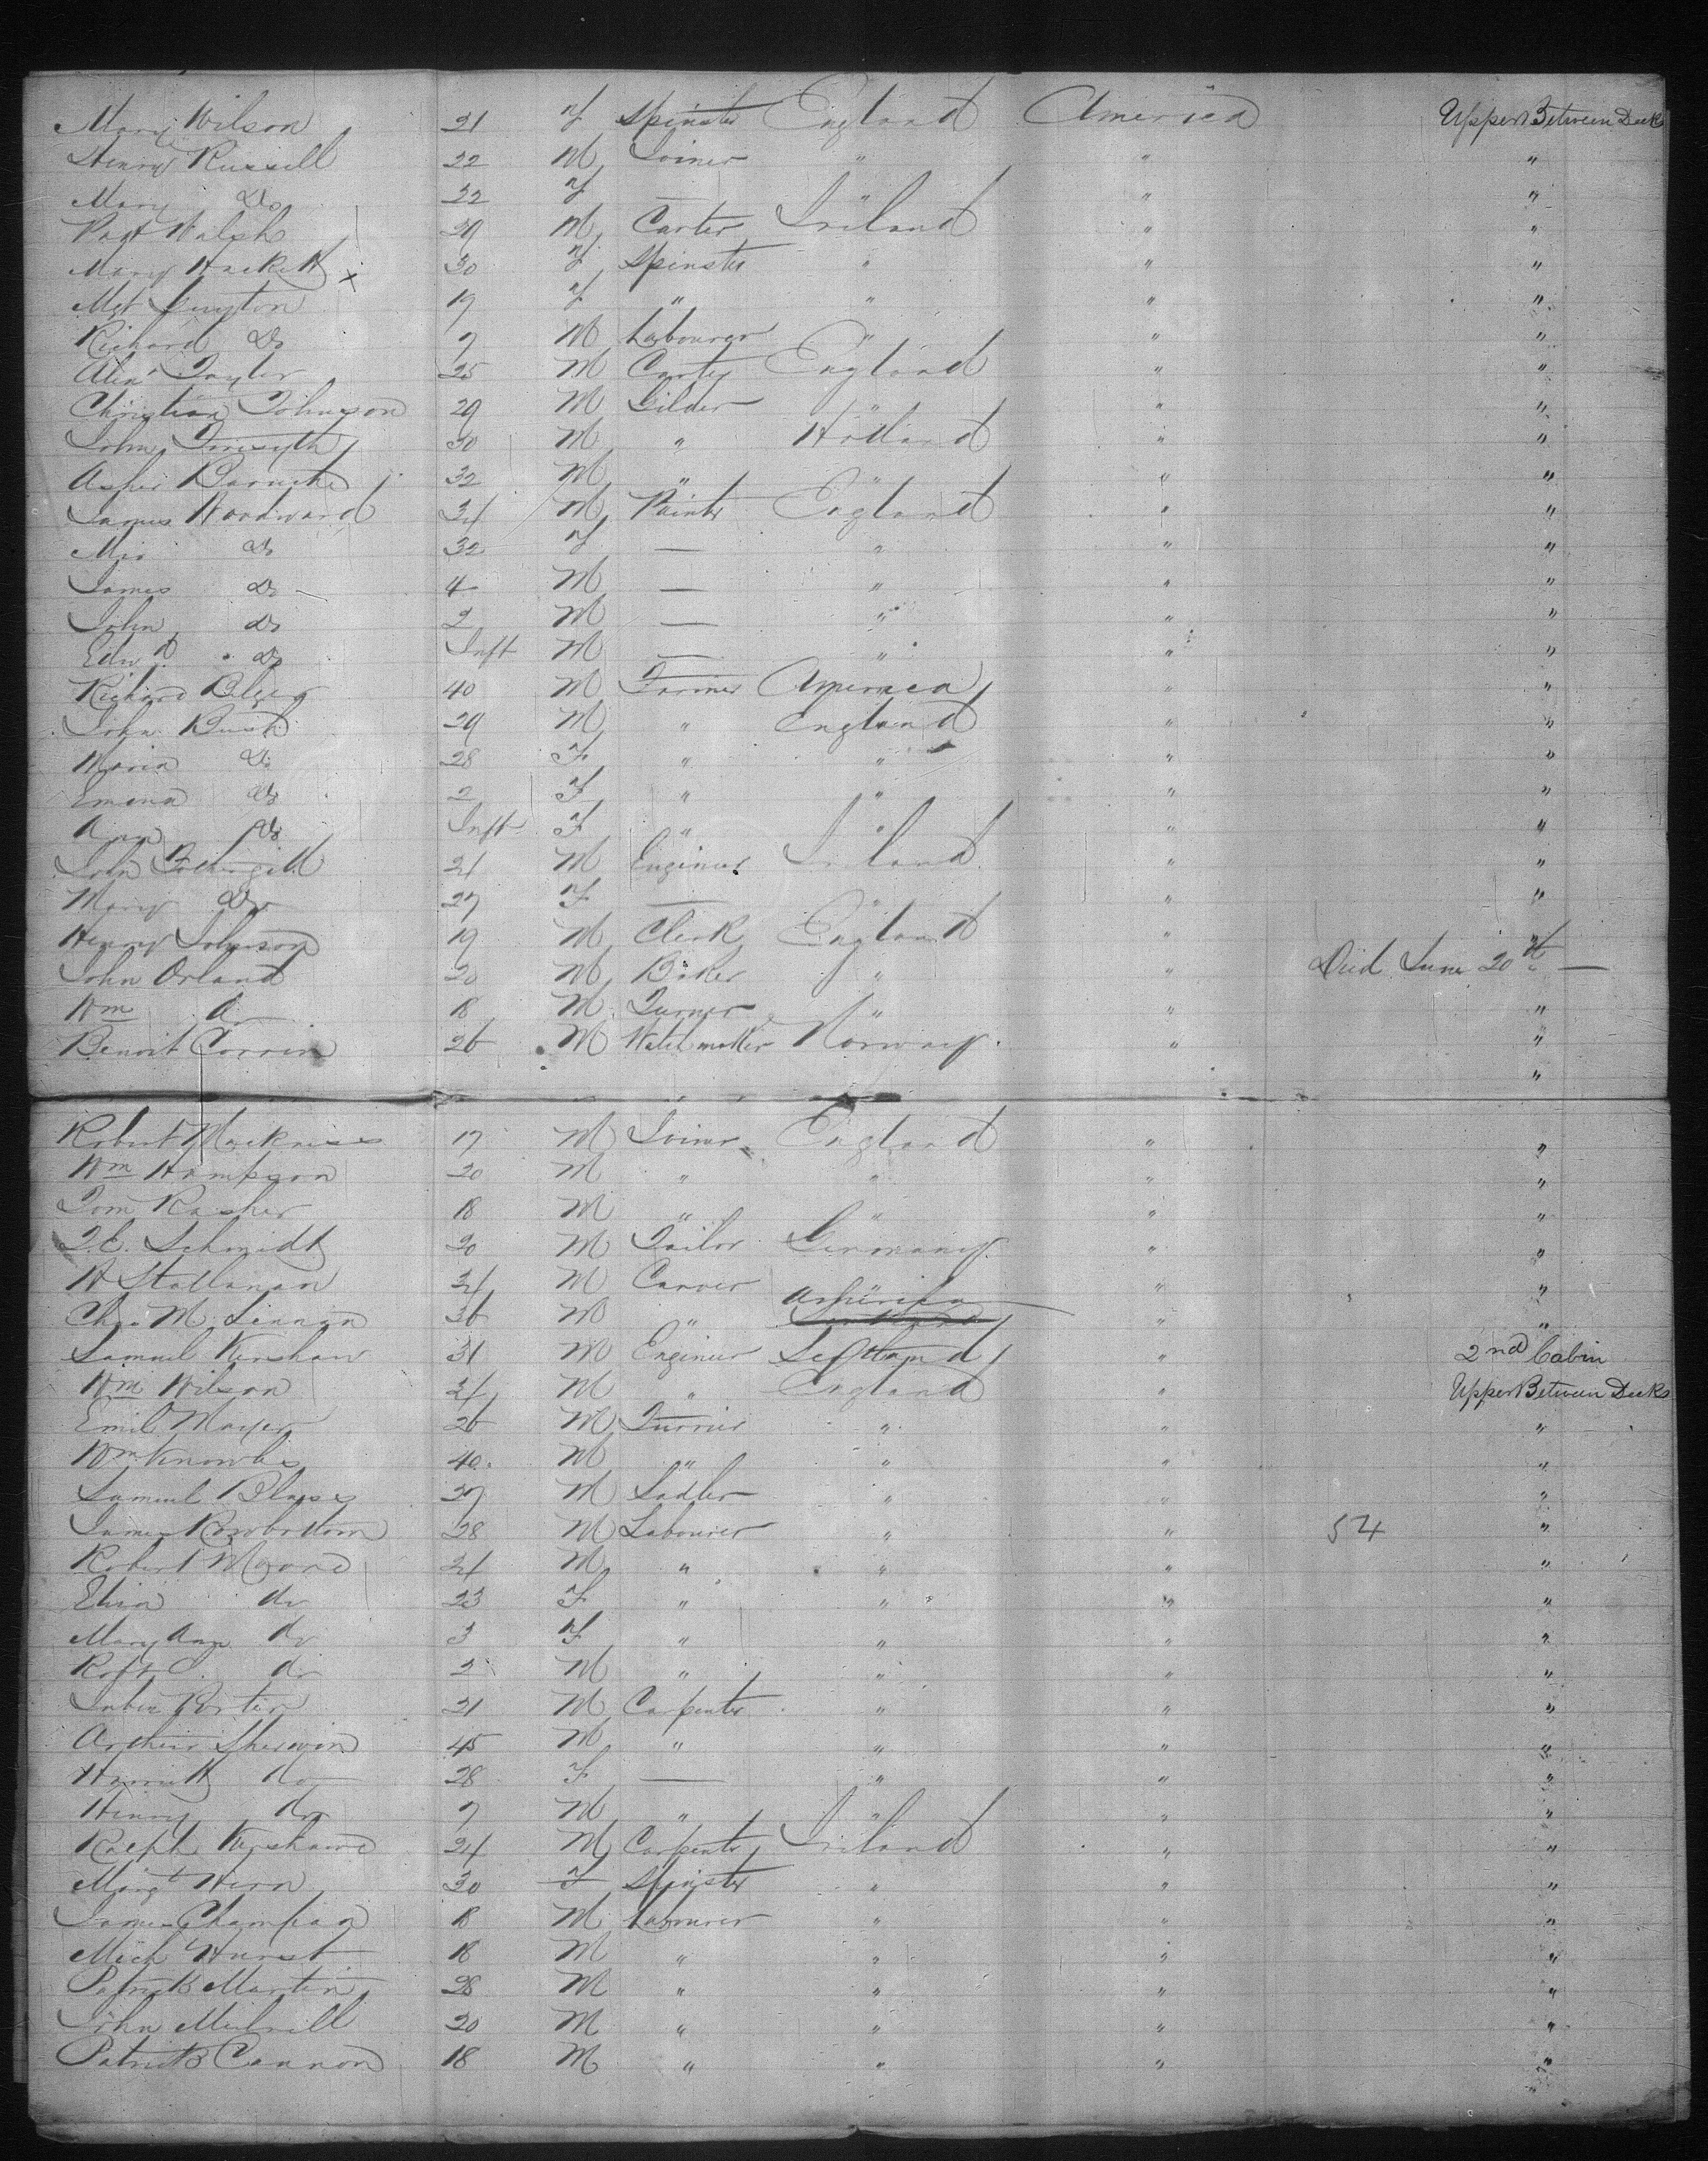 Mary Wilson 21 f Spinster England America Upper Between Decks
Henry Russell 22 M Joiner " " "
Mary Do 22 f — " " "
Pat Walsh 29 M Carter Ireland " "
Mary Hackett x 30 f Spinster " " "
Mgt 19 f " " " "
Richard Do 7 M Labourer " " "
Alexr Taylor 25 M Carter England " "
Christian Johnson 29 M Gilder " " "
John Forsyth 30 M " Holland " "
Asher 32 M " " " "
James Woodward 34 M Painter England " "
Do 32 f — " " "
James Do 4 M — " " "
John do 2 M — " " "
Edwd Do Inft M — " " "
Richard 40 M Farmer America " "
John Bush 29 M " England " "
Maria Do 28 F " " " "
Emma Do 2 F " " " "
Ann Do Inft F " " " "
John Fothergill 24 M Engineer Ireland " "
Mary Do 27 F — " " "
Henry Johnson 19 M Clerk England " "
John Orland 20 M Baker " " Died June 20th —
Wm Do 18 M Turner " " "
Benoit 26 M Watchmaker Norway " "
"
Robert 17 M Joiner England " "
Wm Hampson 20 M " " " "
Tom Rasher 18 M " " " "
Schmidt 20 M Tailor Germany " "
H 24 M Carver " "
Chas M. Lennon 36 M " America " "
Samuel Kershaw 31 M Engineer Scotland " 2nd Cabin
Wm Wilson 24 M " England " Upper Between Decks
Emil Mayer 26 M Furrier " " "
Wm Knowles 40 M " " " "
Samuel 27 M Sadler " " "
James Rowbottom 28 M Labourer " " 54 "
Robert Moore 24 M " " " "
Eliza do 23 F " " " "
Mary Ann do 3 F " " " "
Robt C. do 2 M " " " "
Porter 21 M Carpenter " " "
Arthur Sherwin 45 M " " " "
Harriett do 28 F — " " "
Henry do 7 M " " " "
Ralph Kershaw 24 M Carpenter Ireland " "
Margt Hern 30 F Spinster " " "
James Champion 18 M Labourer " " "
Mich Hurst 18 M " " " "
Patrick Martin 28 M " " " "
John 20 M " " " "
Patrick Cannon 18 M " " " "
"